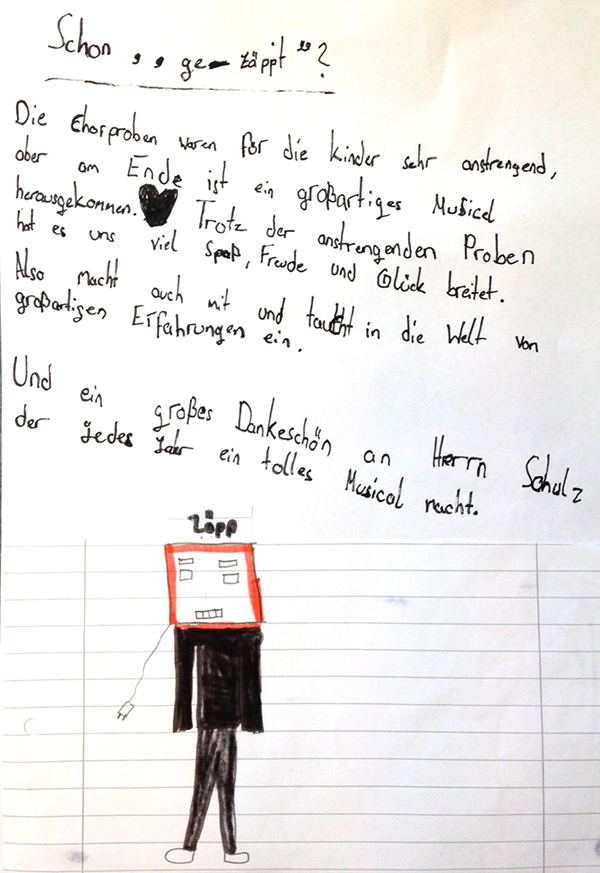 Schon ,, ge-zäppt"?
Die Chorproben waren für die kinder sehr anstrengend,
aber am Ende ist ein großartiges Musicel
herausgekommen. Trotz der anstrengenden Proben
hat es uns viel Spaß, Freude und Glück breitet.
Also macht auch mit und taucht in die Welt von
großartigen Erfahrungen ein.
Und ein großes Dankeschön an Herrn Schulz
der jedes Jahr ein tolles Musical macht.
Zäpp